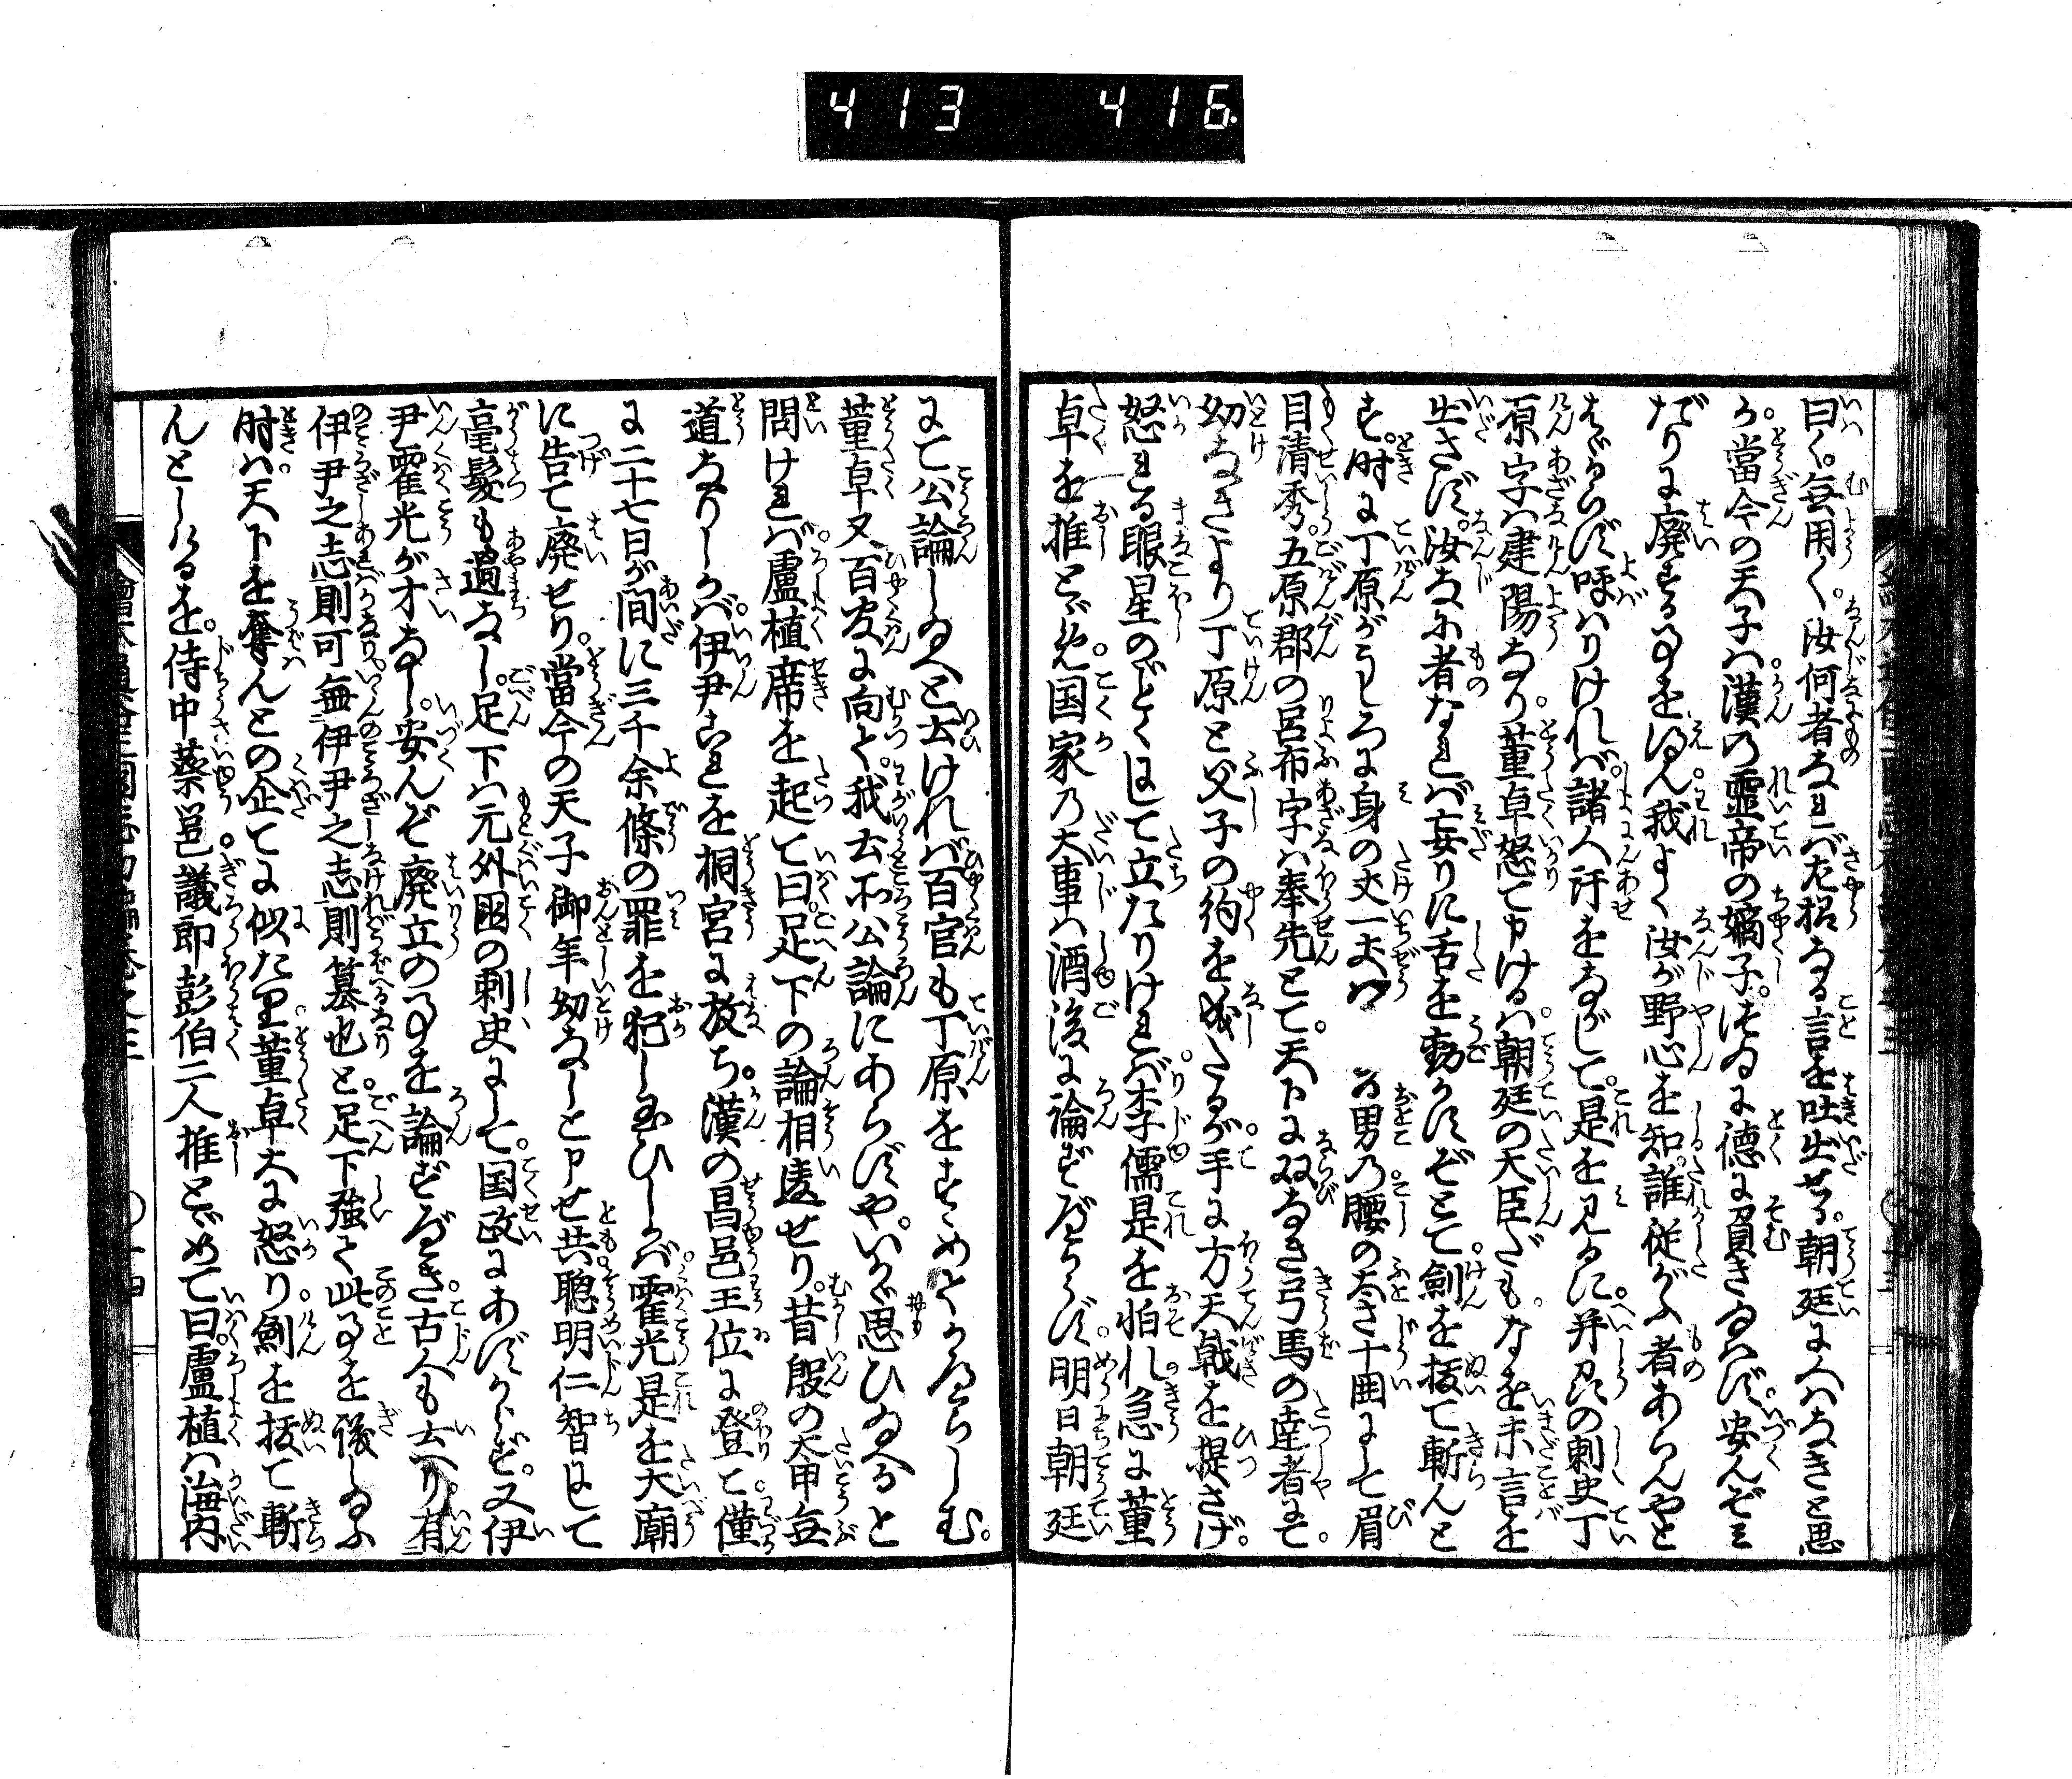 413 416
曰く。無用く。汝何者なれバ左様なる言を吐出せる。朝廷に人ハなきと思
か。當今の天子ハ漢の霊帝の嫡子。殊に徳に負き給ハず。安んぞミ
だりに廃する事を得ん我よく汝が野心を知。誰従がふ者あらんやと
はゞからず呼ハりけれバ諸人汗をながして。是を見るに。并州の刺史丁
原字ハ建陽なり。董卓怒て申けるハ。朝廷の大臣だも。なを未言を
出さず。汝なに者なれバ妄りに舌を動かすぞとて。劍を抜て斬んと
す。時に丁原がうしろに身の丈一丈 男の腰の太さ十囲にして眉
目清秀。五原郡の呂布字ハ奉先とて。天下に双なき弓馬の達者にて。
幼なきより丁原と父子の約を成たるが。手に方天戟を提さげ。
怒れる眼星のごとくにして立たりけれバ。李儒是を怕れ。急に董
卓を推とゞめ。国家の大事ハ酒後に論ずべからず。明日朝廷
にて公論し給へと云けれバ百官も丁原をすゝめてかへらしむ。
董卓又百官に向て。我云所公論にあらずや。いかゞ思ひ給へると
問けれバ。盧植席を起て曰。足下の論相違せり。昔殷の太甲無
道なりしかバ。伊尹これを桐宮に放ち。漢の昌邑王位に登て。僅
に二十七日が間に三千余條の罪を犯し玉ひしかバ。霍光是を大廟
に告て廃せり。當今の天子御年幼なしと申せ共。聡明仁智にして
毫髪も過なし。足下ハ元外国の刺史にして。国政にあづからず。又伊
尹霍光が才なし。安んぞ廃立の事を論ずべき。古人も云り。有
伊尹之志則可無伊尹之志則簒也と足下強て此事を議し給ふ
時ハ。天下を奪んとの企てに似たり。董卓大に怒り。劍を抜て斬
んとしけるを。侍中蔡邕。議郎彭伯二人推とゞめて曰。盧植ハ海内